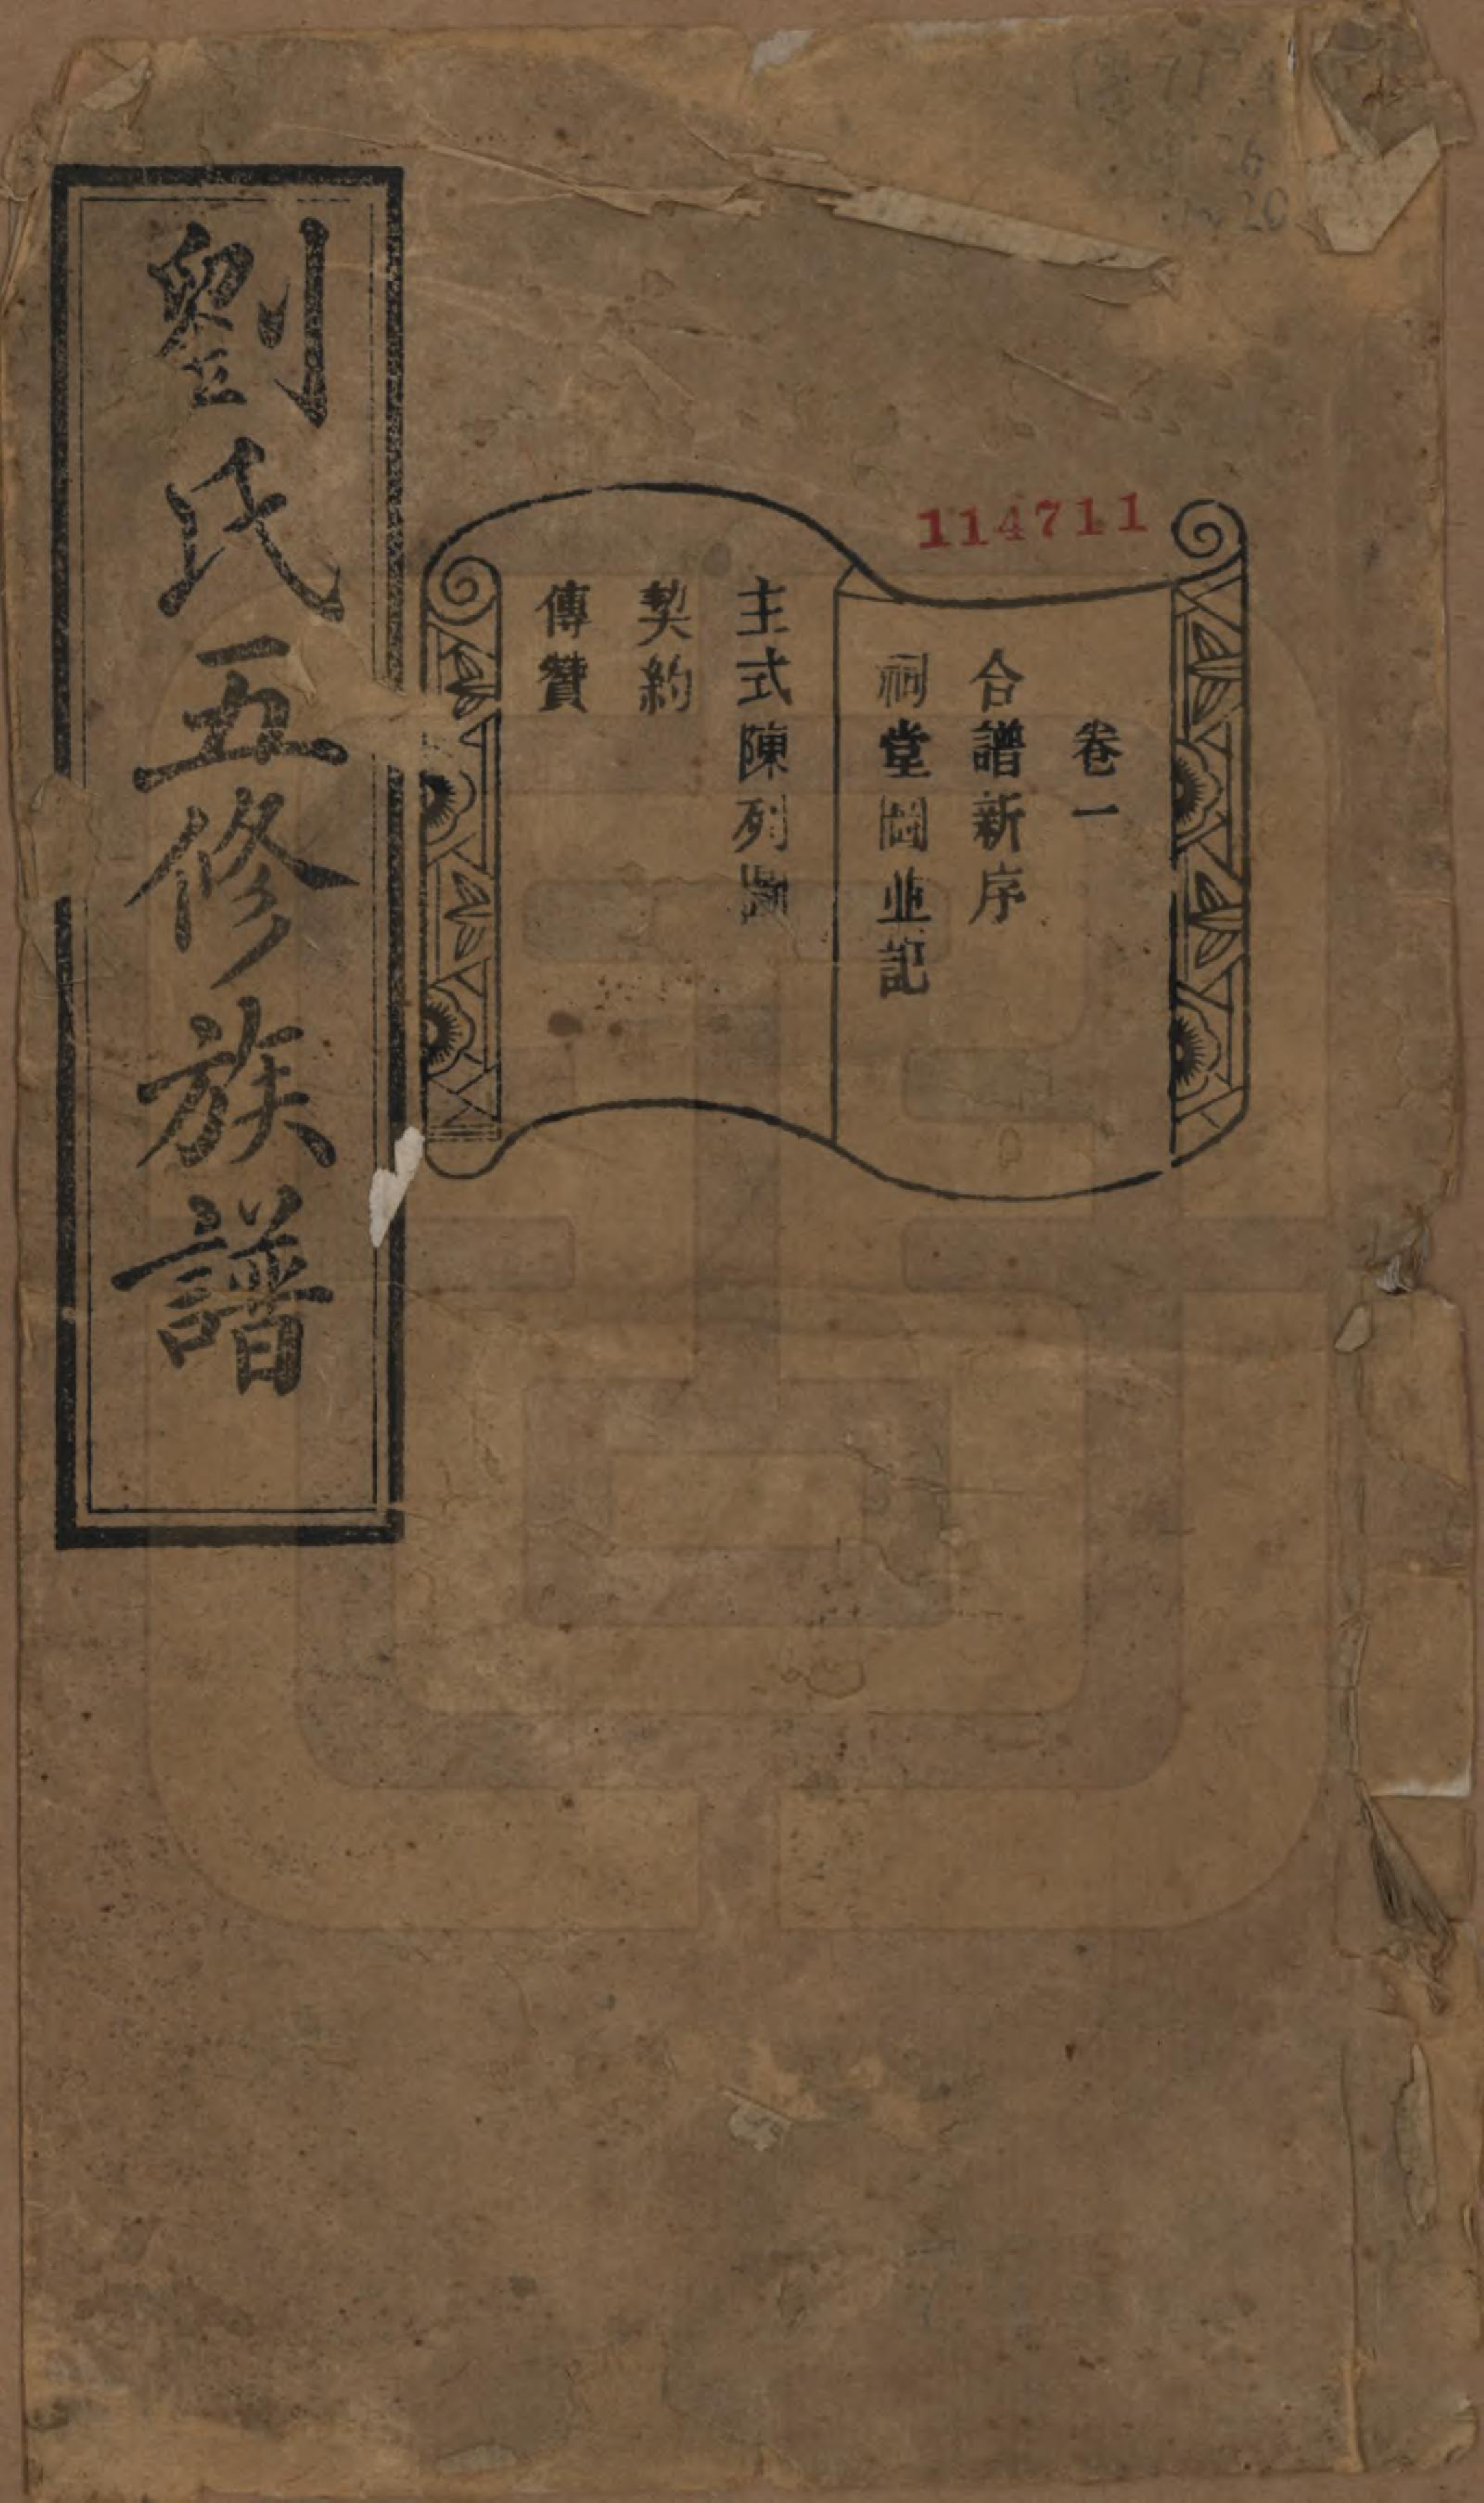 114711
卷一
合譜新序
祠堂圖並記
主式陳列圖
契約
傳贊
劉氏五修族譜